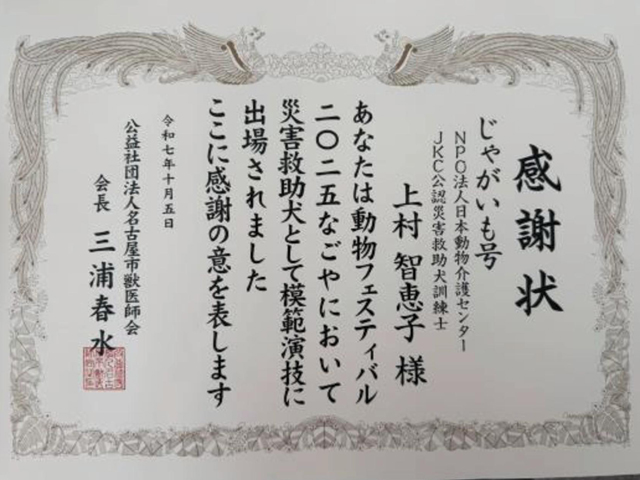 感謝状
じゃがいも号
NPO法人日本動物介護センター
JKC公認災害救助犬訓練士
上村 智恵子 様
あなたは動物フェスティバル
二〇二五なごやにおいて
災害救助犬として模範演技に
出場されました
ここに感謝の意を表します
令和七年十月五日
公益社団法人名古屋市獣医師会
会長 三浦春水